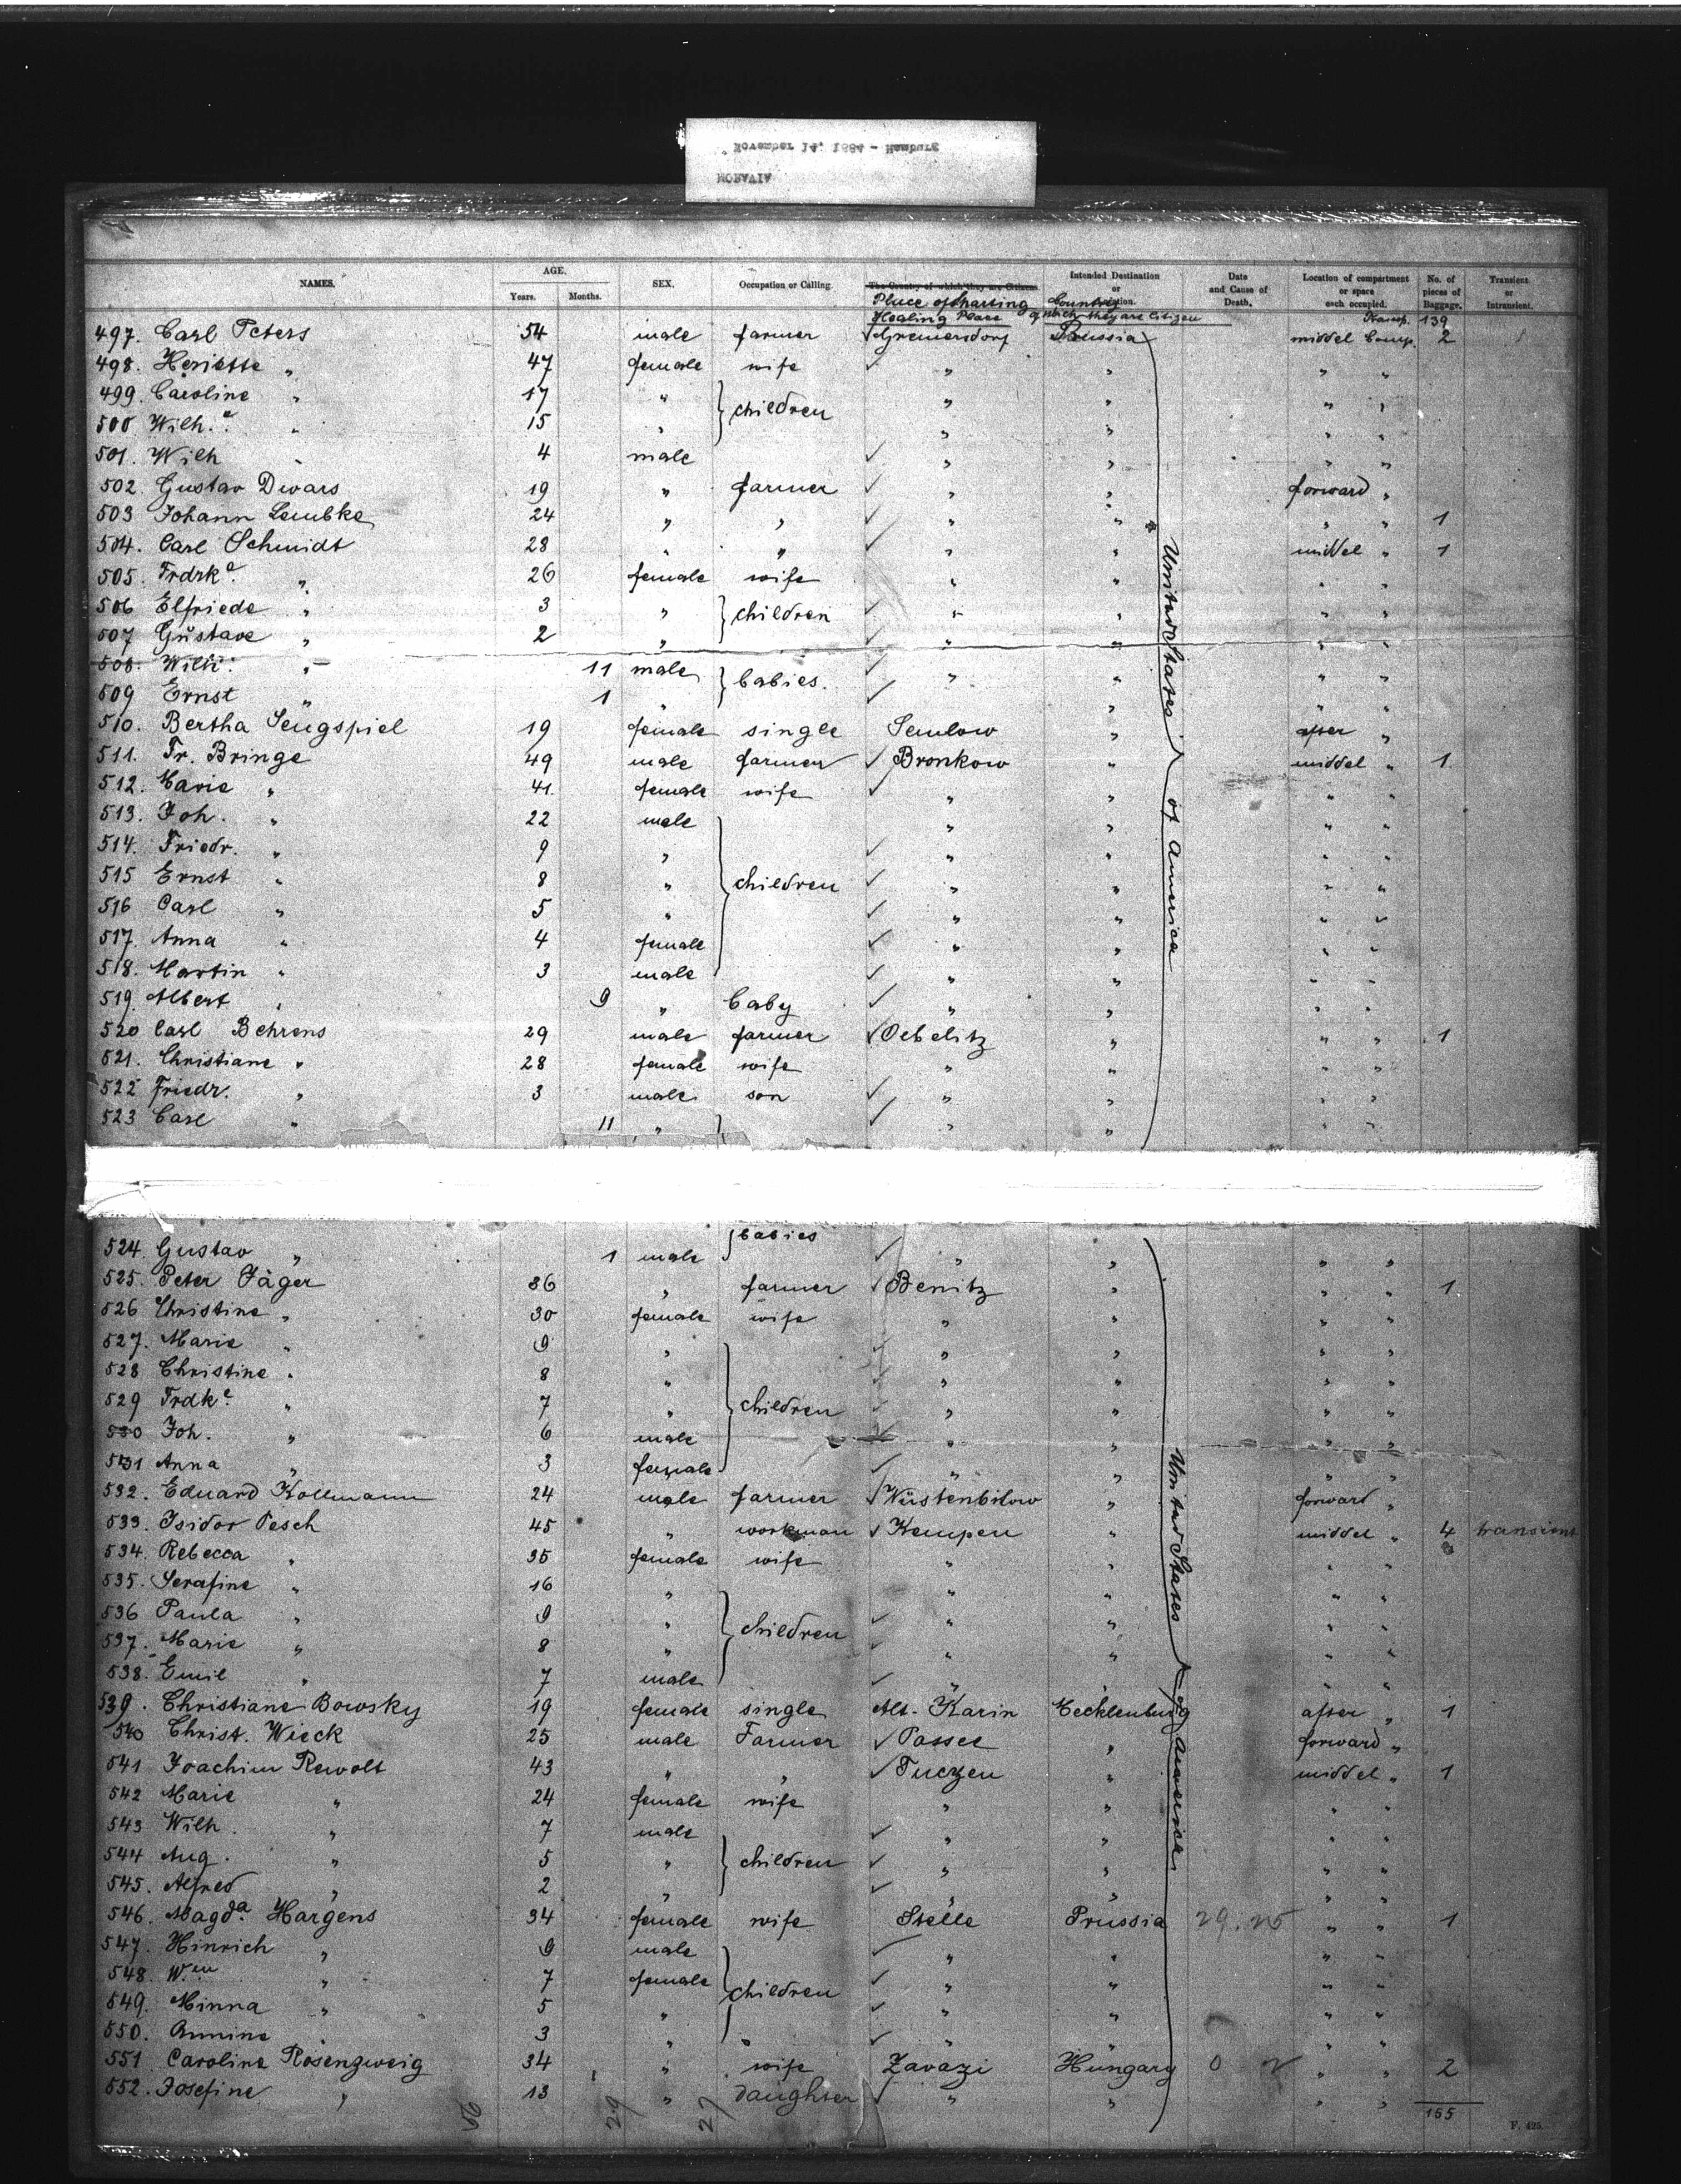 November 14, 1884 - Hamburg
MORAVIA
NAMES. AGE. Years. Months. SEX. Occupation or Calling. The Country of which they are Citizens. Intended Destination or Location. Date and Cause of Death. Location of compartment or space each occupied. No. of pieces of Baggage. Transient or Intransient.
Place of starting Country
Place of which they are Citizen Transp. 139
497. Carl Peters 54 male farmer Gremersdorf Prussia middel Comp. 2
498. Henriette " 47 female wife " " " "
499. Caroline " 17 " children " " " "
500 Wilh.e " 15 " " " " "
501. Wilh " 4 male " " " "
502. Gustav Dwars 19 " farmer " " forward "
503 Johann Lembke 24 " " " " " " 1
504. Carl Schmidt 28 " " " " middel " 1
505. Frdrke. " 26 female wife " " " "
506 Elfriede " 3 " children " " " "
507 Gustave " 2 " " " " "
508. Wilh. " 11 male babies. " " " "
509 Ernst " 1 " " " "
510. Bertha Sengspiel 19 female single Semlow " after "
511. Fr. Bringe 49 male farmer Bronkow " middel " 1
512. Marie " 41. female wife " " " "
513. Joh. " 22 male " " " "
514. Friedr. " 9 " " " " "
515 Ernst " 8 " children " " " "
516 Carl " 5 " " " " "
517. Anna " 4 female " " " "
518. Martin " 3 male " " " "
519. Albert " 9 " baby " " " "
520 Carl Behrens 29 male farmer Oebelitz " " " 1
521. Christiane " 28 female wife " " " "
522 Friedr. " 3 male son " " " "
523 Carl " 11 " " " " "
United States of America
524. Gustav " 1 male babies " " " "
525. Peter Jäger 36 " farmer Benitz " " " 1
526 Christine " 30 female wife " " " "
527. Marie " 9 " " " " "
528 Christine " 8 " " " " "
529 Frdke. " 7 " children " " " "
530 Joh. " 6 male " " " "
531 Anna " 3 female " " " "
532. Eduard Kollmann 24 male farmer Wüstenbilow " forward "
533. Isidor Pesch 45 " workman Kempen " middel " 4 transient
534. Rebecca " 35 female wife " " " "
535. Serafine " 16 " " " " "
536 Paula " 9 " children " " " "
537. Marie " 8 " " " "
538. Emil " 7 male " " " "
539. Christiane Bowsky 19 female single Alt-Karin Mecklenburg after " 1
540 Christ. Wieck 25 male Farmer Passee " forward "
541 Joachim Rewolt 43 " " Tuczen " middel " 1
542 Marie " 24 female wife " " " "
543 Wilh. " 7 male " " " "
544 Aug. " 5 " children " " " "
545. Alfred " 2 " " " " "
546. Magda. Hargens 34 female wife Stelle Prussia 29. " " 1
547. Hinrich " 9 male " " " "
548. Wm " 7 female children " " " "
549. Minna " 5 " " " " "
550. Annine " 3 " " " " "
551. Caroline Rosenzweig 34 " wife Zavazi Hungary 0 " " 2
552. Josefine " 13 " daughter " " " "
United States of America
29 27 155
F. 425.